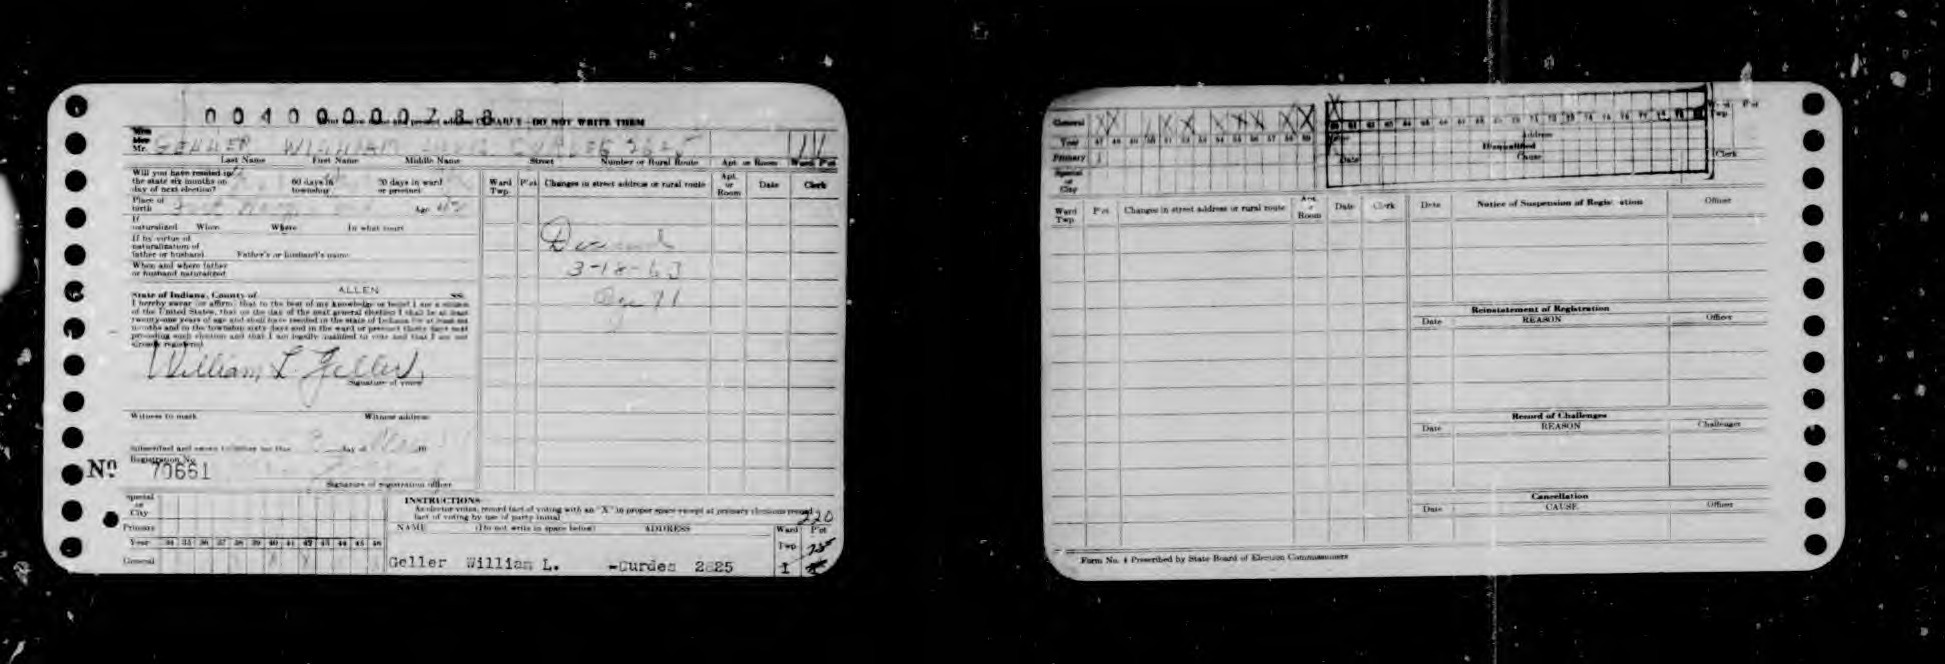 00400000788
CLEARLY—DO NOT WRITE THEM
Miss
Mrs.
Mr. GELLER WILLIAM 2625 11
Last Name First Name Middle Name Street Number or Rural Route Apt. or Room Ward Pct
Will you have resided in:
the state six months on 60 days in 30 days in ward
day of next election? township or precinct
Ward Twp. P'ct Changes in street address or rural route Apt. or Room Date Clerk
Place of
birth Age
If
naturalized When Where In what court
If by virtue of
naturalization of
father or husband Father's or husband's name
When and where father
or husband naturalized
Deceased
3-18-63
Age 71
State of Indiana, County of ALLEN SS:
I hereby swear (or affirm) that to the best of my knowledge or belief I am a citizen
of the United States, that on the day of the next general election I shall be at least
twenty-one years of age and shall have resided in the state of Indiana for at least six
months and in the township sixty days and in the ward or precinct thirty days next
preceding such election and that I am legally qualified to vote and that I am not
already registered.
William L. Geller
Signature of voter
Witness to mark Witness address
Subscribed and sworn to before me this day of 19
Registration No.
No 70661
Signature of registration officer
Special
or
City
Primary
Year 34 35 36 37 38 39 40 41 42 43 44 45 46
General X X
INSTRUCTIONS
As elector votes, record fact of voting with an "X" in proper space except at primary elections record
fact of voting by use of party initial. 220
NAME (Do not write in space below) ADDRESS Ward P'ct
Twp
Geller William L. -Curdes 2625 I
General X X X X X X X X X X X
Year 47 48 49 50 51 52 53 54 55 56 57 58 59
Primary
Special
or
City
60 61 62 63 64 65 66 67 68 69 70 71 72 73 74 75 76 77 78 79 80
Address
Disqualified
Date Cause
Ward Twp. P'ct
Clerk
Ward Twp. P'ct Changes in street address or rural route Apt. or Room Date Clerk
Date Notice of Suspension of Registration Officer
Reinstatement of Registration
Date REASON Officer
Record of Challenges
Date REASON Challenger
Cancellation
Date CAUSE Officer
Form No. 4 Prescribed by State Board of Election Commissioners